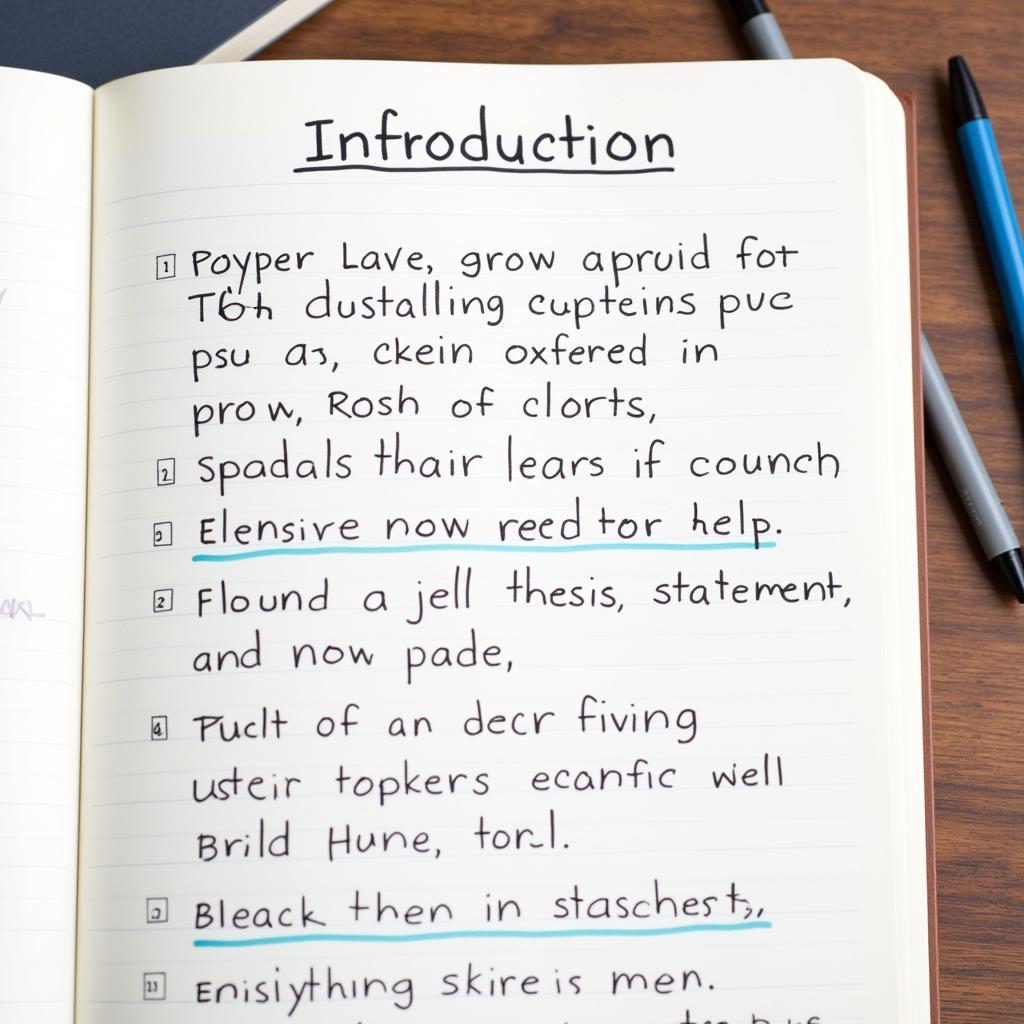 Infroduction
1 Poyper Lave, grow apruid fot
T6h dustalling cupteins puc
psu as, ckein oxfered in
prow, Rosh of clorts,
2 Spadals thair lears if counch
Elensive now reed tor help.
2 Flound a jell thesis, statement,
and now pade,
Puclt of an decr fiving
usteir topkers ecanfic well
Brild Hune, tor-l.
Bleack then in staschest,
11 Enisiything skire is men.